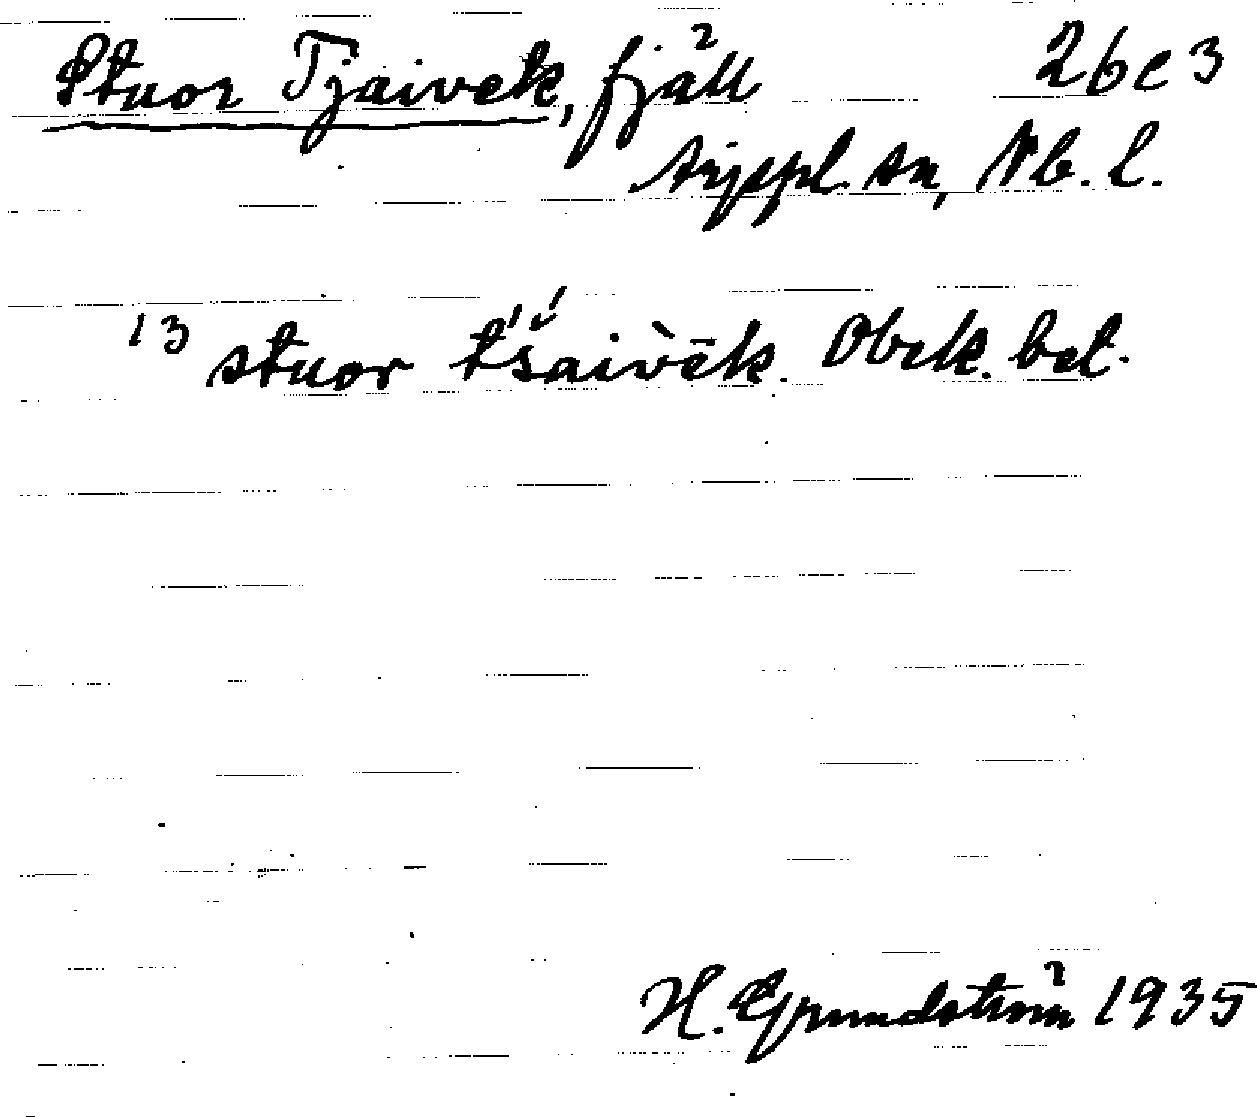 Stuor Tjaivek, fjäll 26e3
Arjeppl. sn, Nb. l.
13 stuor t́š́aiv̀ēk. Obek. bet.
H. Grundström 1935